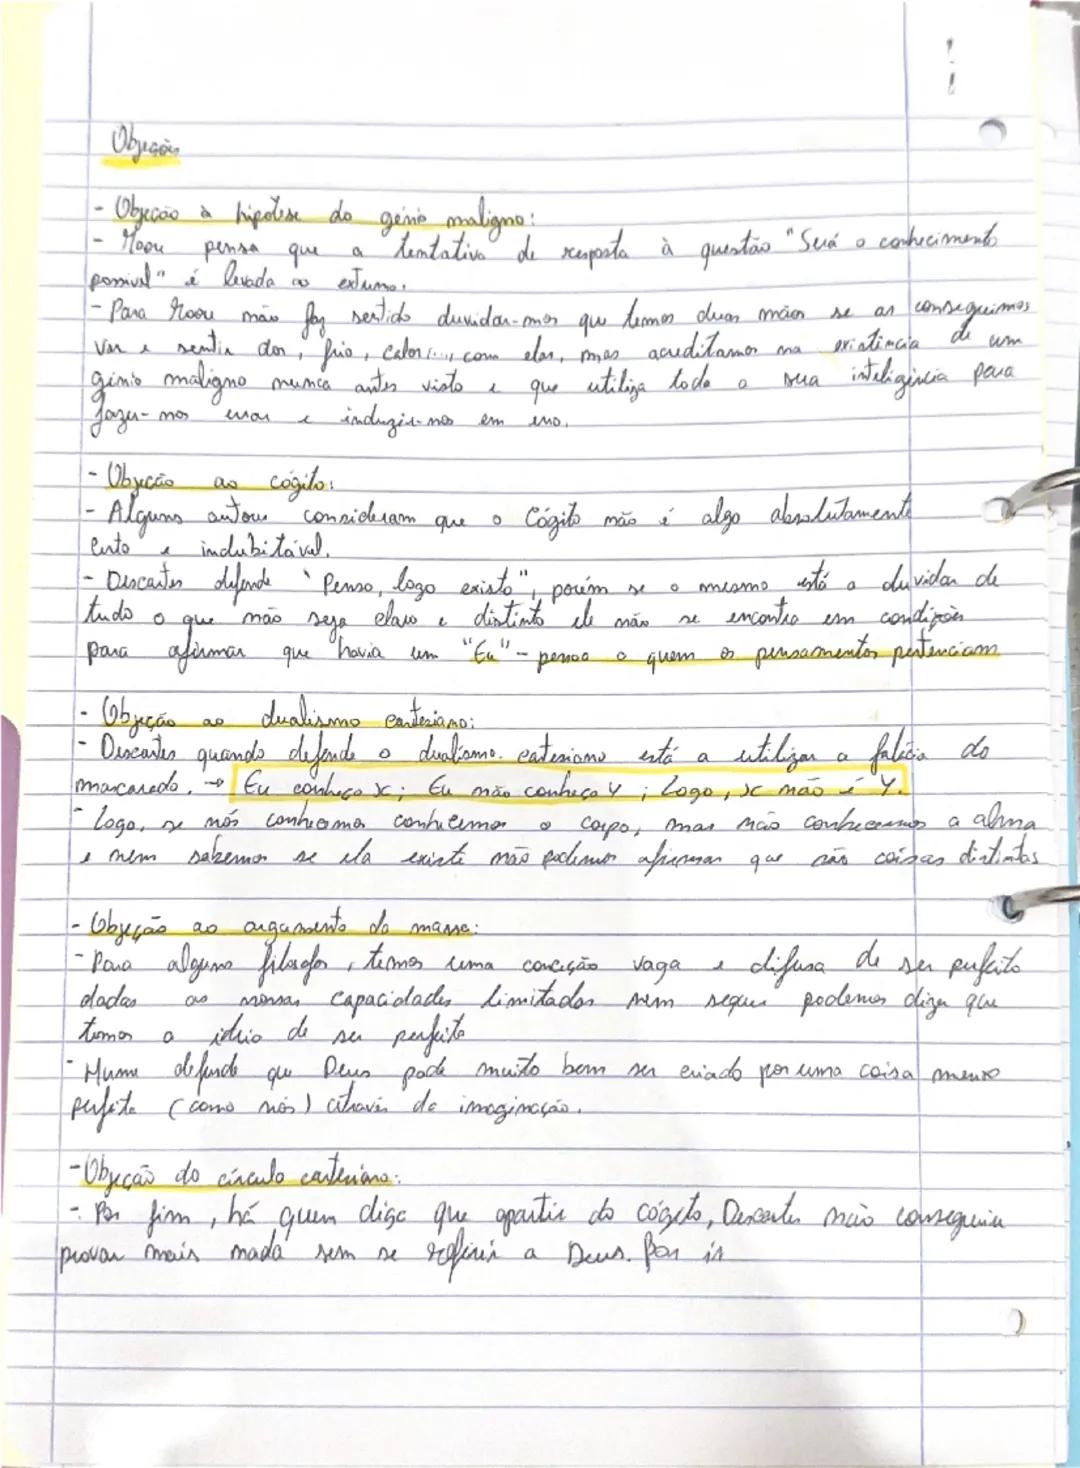 Objeções
- Objeção à hipótese do génio maligno:
- Moore pensa que a tentativa de resposta à questão "Será o conhecimento
possível" é levada ao extremo.
- Para Moore não faz sentido duvidar-mos que temos duas mãos se as conseguimos
ver e sentir dor, frio, calor..., com elas, mas acreditamos na existência de um
génio maligno nunca antes visto e que utiliza toda a sua inteligência para
fazer-nos errar e induzir-nos em erro.
- Objeção ao cógito:
- Alguns autores consideram que o Cógito não é algo absolutamente
certo e indubitável.
- Descartes defende "Penso, logo existo", porém se o mesmo está a duvidar de
tudo o que não seja claro e distinto ele não se encontra em condições
para afirmar que havia um "Eu" - pessoa o quem os pensamentos pertenciam
- Objeção ao dualismo cartesiano:
- Descartes quando defende o dualismo. catesiano está a utilizar a falácia do
mascarado. → Eu conheço X; Eu não conheço Y; Logo, X não é Y.
- Logo, se nós conhecemos o corpo, mas não conhecemos a alma
e nem sabemos se ela existe não podemos afirmar que são coisas distintas
- Objeção ao argumento da marca:
- Para alguns filósofos, temos uma conceção vaga e difusa de ser perfeito
dadas as nossas capacidades limitadas nem sequer podemos dizer que
temos a ideia de ser perfeito
- Hume defende que Deus pode muito bem ser criado por uma coisa menos
perfeita (como nós) através da imaginação.
- Objeção do círculo cartesiano:
- Por fim, há quem diga que apartir do cógito, Descartes não conseguiria
provar mais nada sem se referir a Deus. Por is